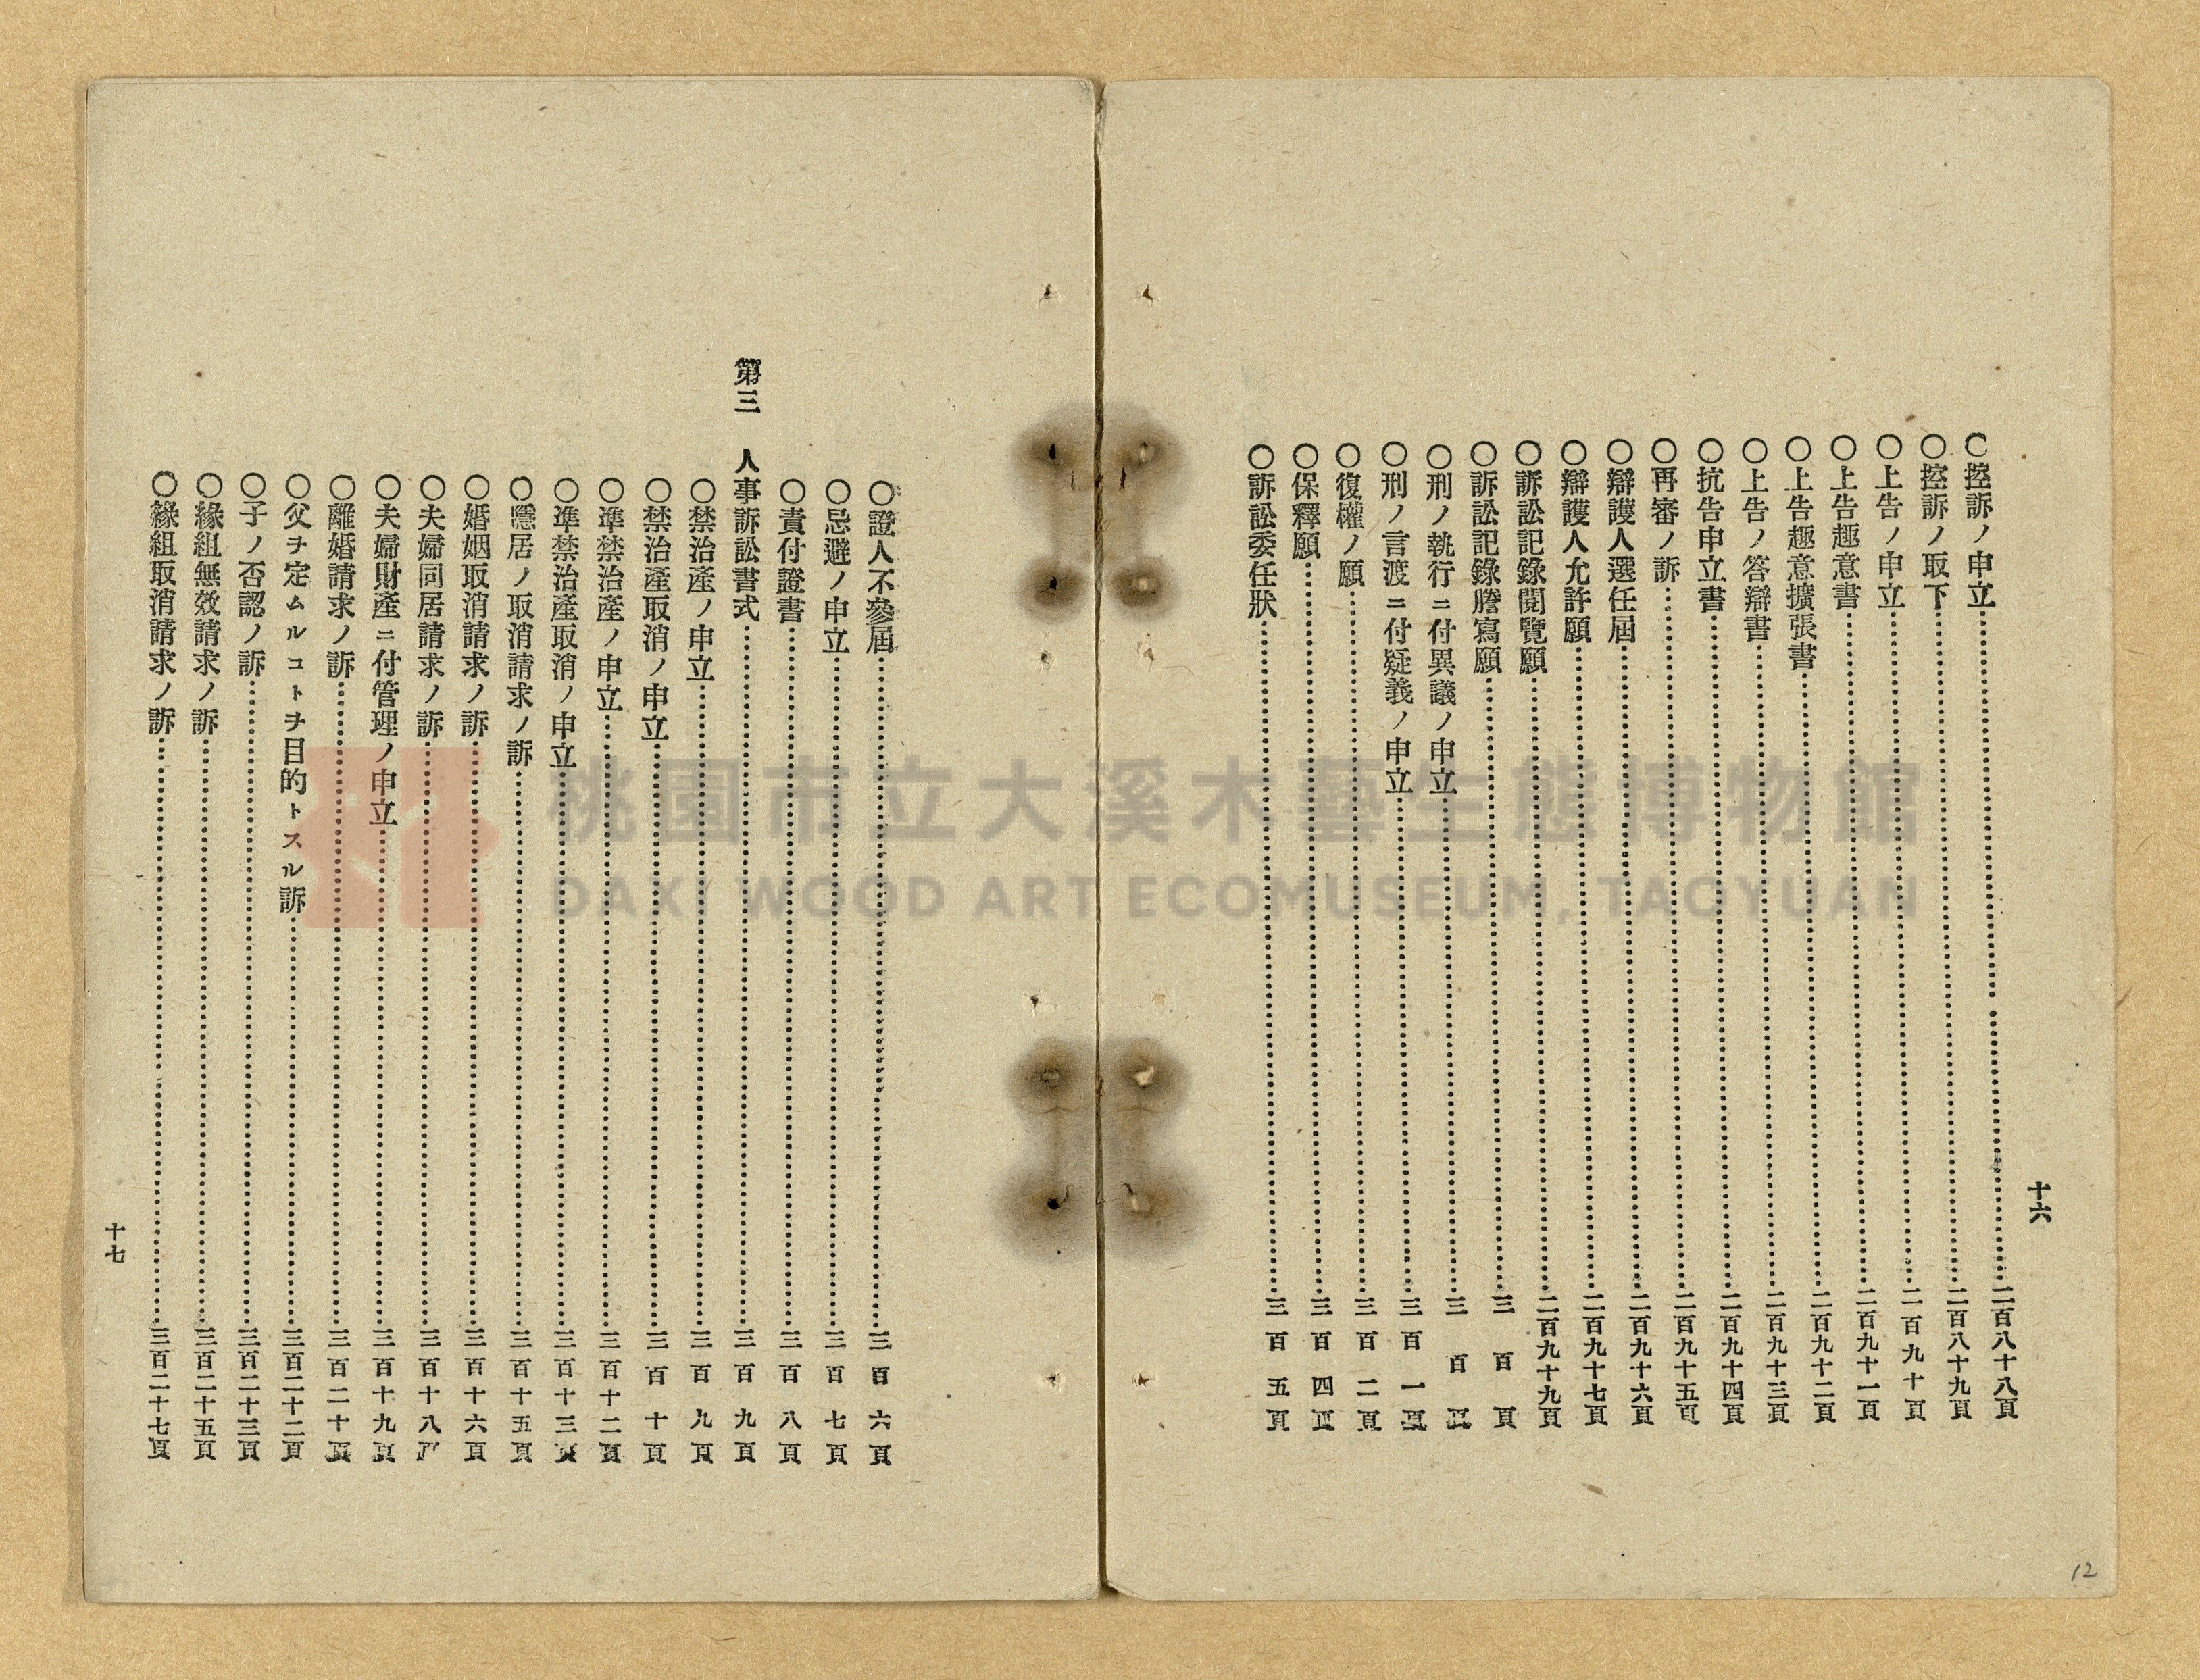 十六
〇控訴ノ申立……二百八十八頁
〇控訴ノ取下……二百八十九頁
〇上告ノ申立……二百九十頁
〇上告趣意書……二百九十一頁
〇上告趣意擴張書……二百九十二頁
〇上告ノ答辯書……二百九十三頁
〇抗告申立書……二百九十四頁
〇再審ノ訴……二百九十五頁
〇辯護人選任屆……二百九十六頁
〇辯護人允許願……二百九十七頁
〇訴訟記錄閱覽願……二百九十九頁
〇訴訟記錄謄寫願……三百頁
〇刑ノ執行ニ付異議ノ申立……三百頁
〇刑ノ言渡ニ付疑義ノ申立……三百一頁
〇復權ノ願……三百二頁
〇保釋願……三百四頁
〇訴訟委任狀……三百五頁
〇證人不參屆……三百六頁
〇忌避ノ申立……三百七頁
〇責付證書……三百八頁
第三 人事訴訟書式……三百九頁
〇禁治產ノ申立……三百九頁
〇禁治產取消ノ申立……三百十頁
〇準禁治產ノ申立……三百十二頁
〇準禁治產取消ノ申立……三百十三頁
〇隱居ノ取消請求ノ訴……三百十五頁
〇婚姻取消請求ノ訴……三百十六頁
〇夫婦同居請求ノ訴……三百十八頁
〇夫婦財產ニ付管理ノ申立……三百十九頁
〇離婚請求ノ訴……三百二十頁
〇父ヲ定ムルコトヲ目的トスル訴……三百二十二頁
〇子ノ否認ノ訴……三百二十三頁
〇緣組無效請求ノ訴……三百二十五頁
〇緣組取消請求ノ訴……三百二十七頁
十七
12
桃園市立大溪木藝生態博物館
DAXI WOOD ART ECOMUSEUM, TAOYUAN